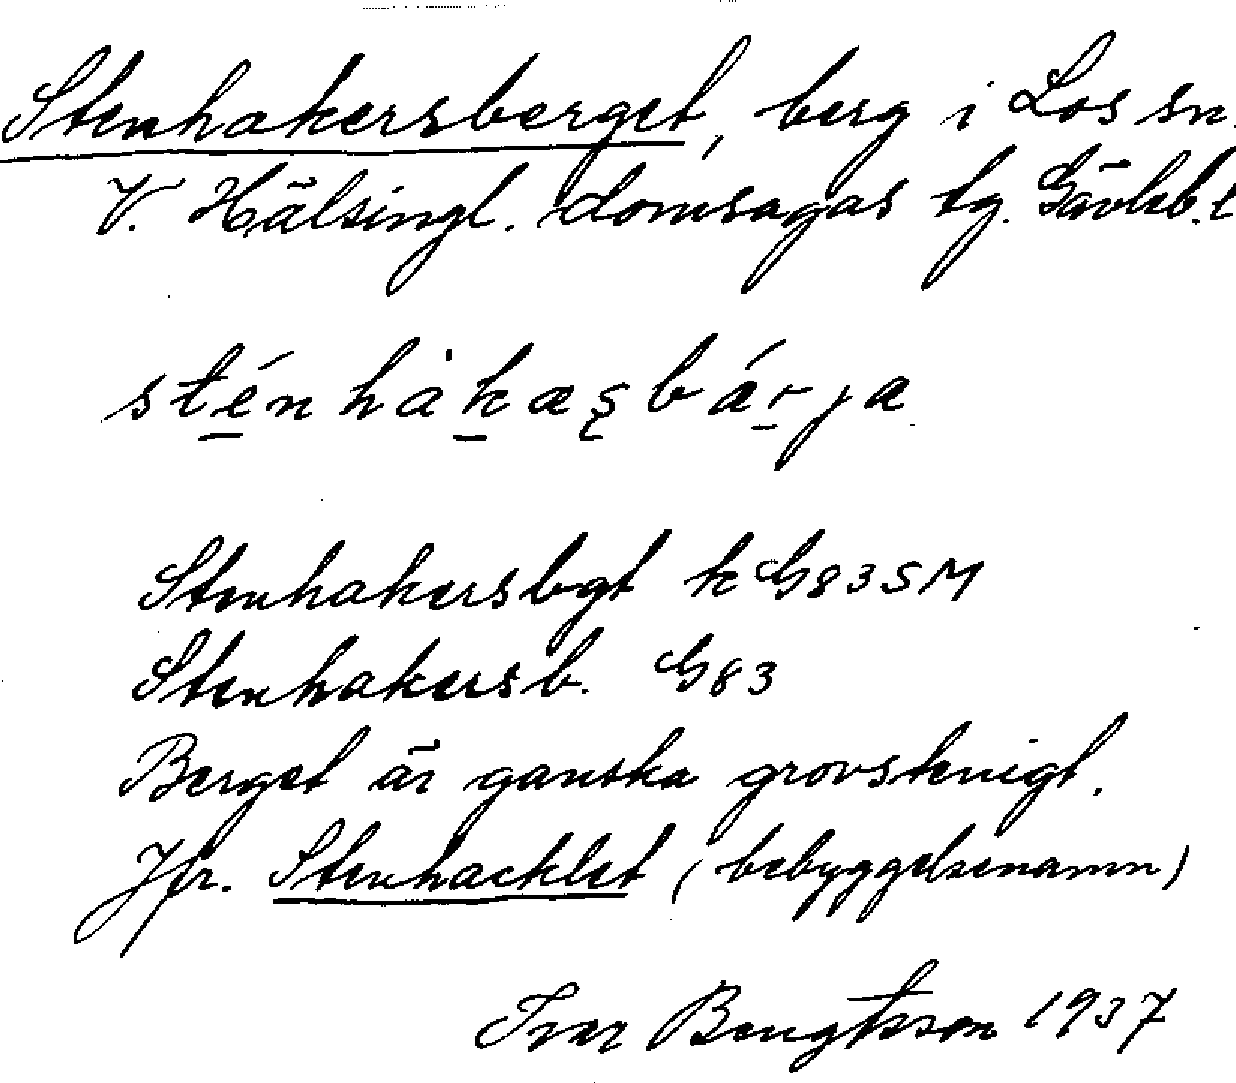 Stenhakersberget, berg i Los sn.
V. Hälsingl. domsagas tg. Gävleb. l
sténhàkæʂbárja
Stenhakersbgt k G83SM
Stenhakersb. G83
Berget är ganska grovstenigt.
Jfr. Stenhacklet (bebyggelsenamn)
Ivar Bengtsson 1937